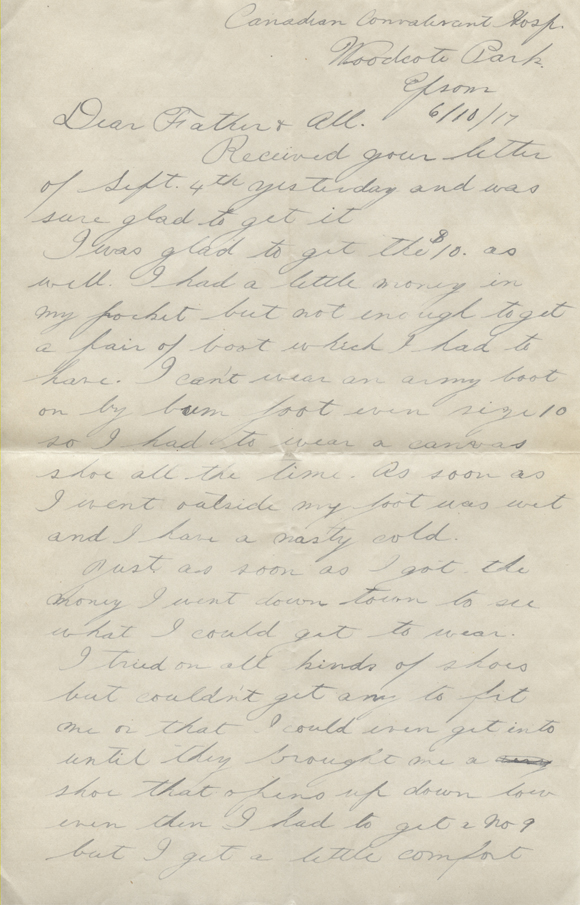 Canadian Convalescent Hosp.
Woodcote Park
Epsom
6/10/17
Dear Father & All.
Received your letter
of Sept. 4th yesterday and was
sure glad to get it
I was glad to get the $10. as
well. I had a little money in
my pocket but not enough to get
a pair of boot which I had to
have. I can't wear an army boot
on by bum foot even size 10
so I had to wear a canvas
shoe all the time. As soon as
I went outside my foot was wet
and I have a nasty cold.
Just as soon as I got the
money I went down town to see
what I could get to wear.
I tried on all kinds of shoes
but couldn't get any to fit
me or that I could even get into
until they brought me a
shoe that opens up down low
even then I had to get a No 9
but I get a little comfort